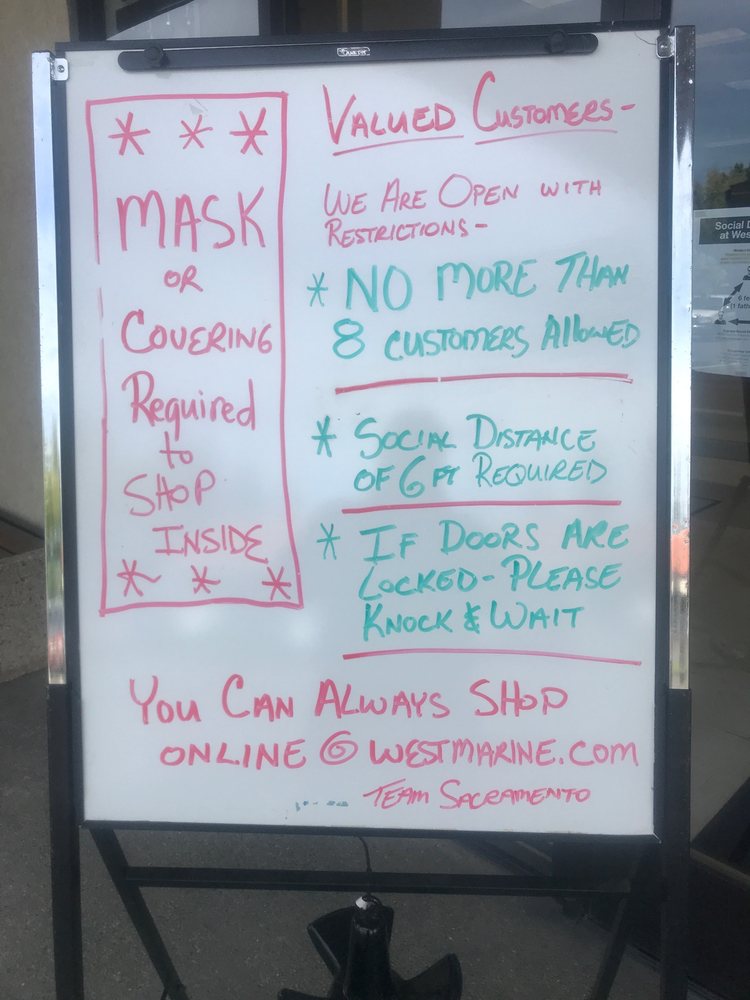 * * *
MASK
OR
COVERING
Required
to
SHOP
INSIDE
* * *
VALUED CUSTOMERS-
WE ARE OPEN WITH
RESTRICTIONS-
* NO MORE THAN
8 CUSTOMERS AllOWED
* SOCIAL DISTANCE
OF 6 FT REQUIRED
* IF DOORS ARE
LOCKED- PLEASE
KNOCK & WAIT
YOU CAN ALWAYS SHOP
ONLINE @ WESTMARINE.COM
TEAM SACRAMENTO
Social
at Wes